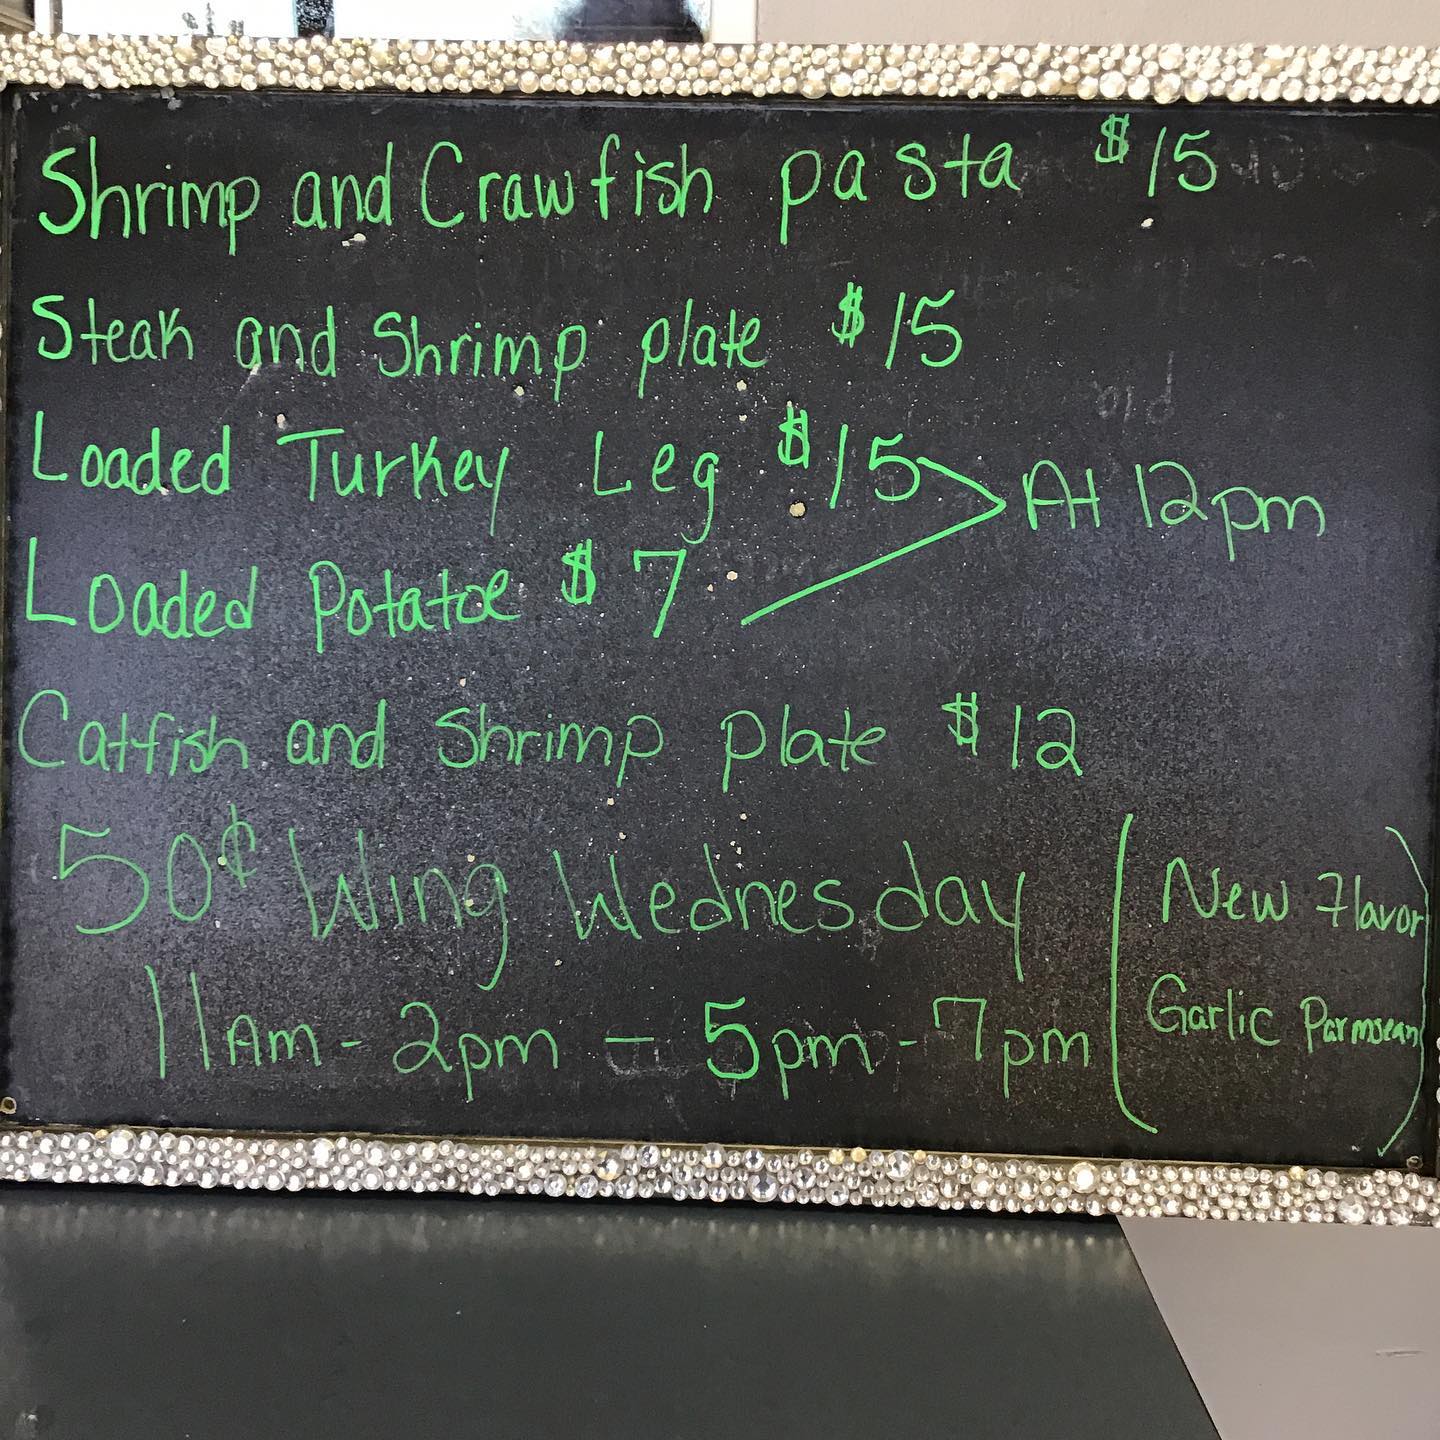 Shrimp and Crawfish pasta $15
Steak and Shrimp plate $15
Loaded Turkey Leg $15
At 12pm
Loaded Potatoe $7
Catfish and Shrimp plate $12
50¢ Wing Wednesday
11Am - 2pm - 5pm - 7pm
(New Flavor
Garlic Parmsean)